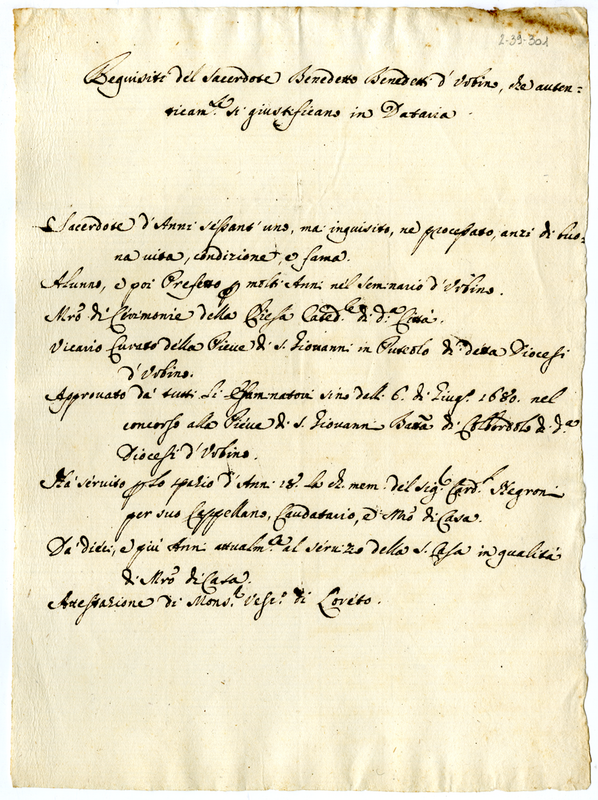 2-39-301
Requisiti del Sacerdote Benedetto Benedetti d'Urbino, che auten=
ticam.te si giustificano in Dataria
Sacerdote d'Anni sessant'uno, mai inquisito, ne processato, anzi di buo-
na vita, condizione, e fama.
Alunno, e poi Prefetto p molti Anni nel Seminario d'Urbino.
Mro di Cerimonie della Chiesa Catted.le di d.a Città.
Vicario Curato della Pieve di S. Giovanni in della Diocesi
d'Urbino.
Approvato da' tutti li Esaminatori sino delli 6. di Giug.o 1680. nel
concorso alla Pieve di S. Giovanni Batta di Colbordolo di d.a
Diocesi d'Urbino.
Ha servito p lo spazio d'Anni 18. la ch. mem. del Sig.r Card.l Negroni
per suo Cappellano, Caudatario, e Mro di Casa.
Da dieci, e più Anni attualm.te al servizio della S. Casa in qualità
di Mro di Casa.
Attestazione di Mons.r Vesc.o di Loreto.